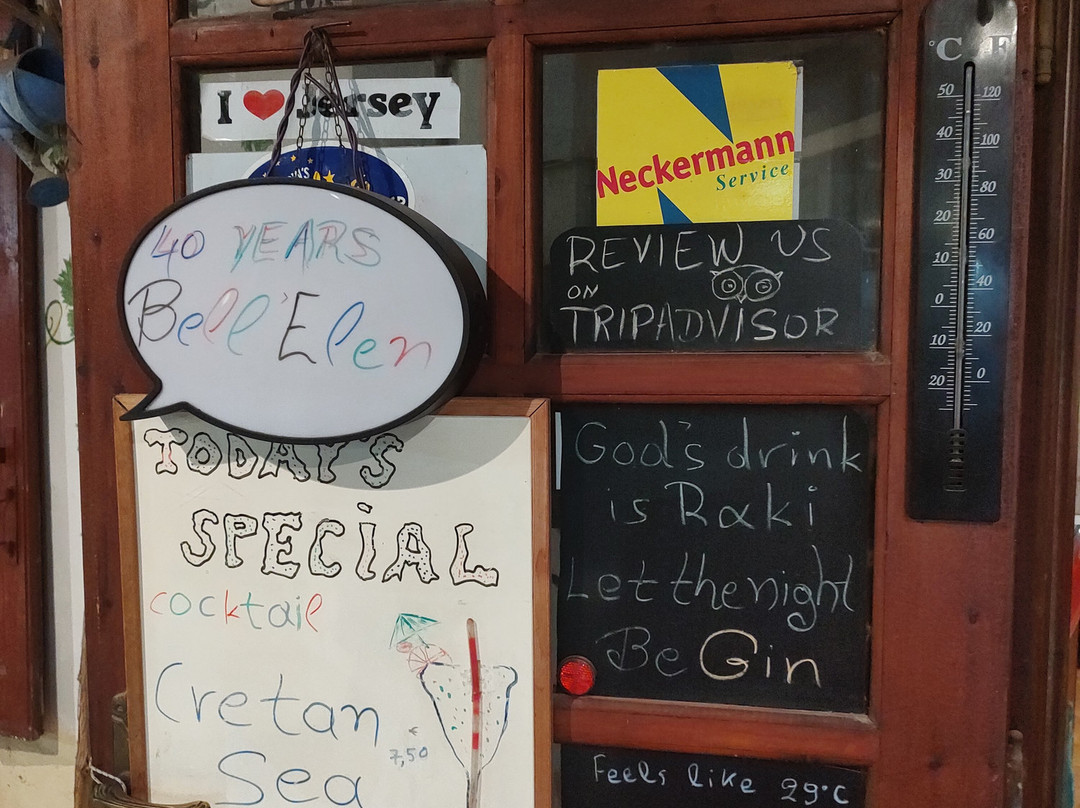 I ❤ Jersey
40 YEARS
Bell'Elen
TODAY'S
SPECIAL
cocktail
Cretan
€
7,50
Sea
Neckermann
Service
REVIEW US
ON
TRIPADVISOR
God's drink
is Raki
Let the night
Be Gin
Feels like 29°C
°C F
50 120
40 100
30 80
20 60
10 40
0 20
10 0
20